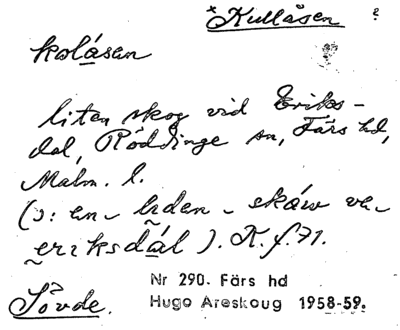 *Kullåsen ?
kolåsen
liten skog vid Eriks-
dal, Röddinge sn, Färs hd,
Malm. l.
(ɔ: en liden skåw ve
eriksdål). K.f.71.
Nr 290. Färs hd
Sövde. Hugo Areskoug 1958-59.